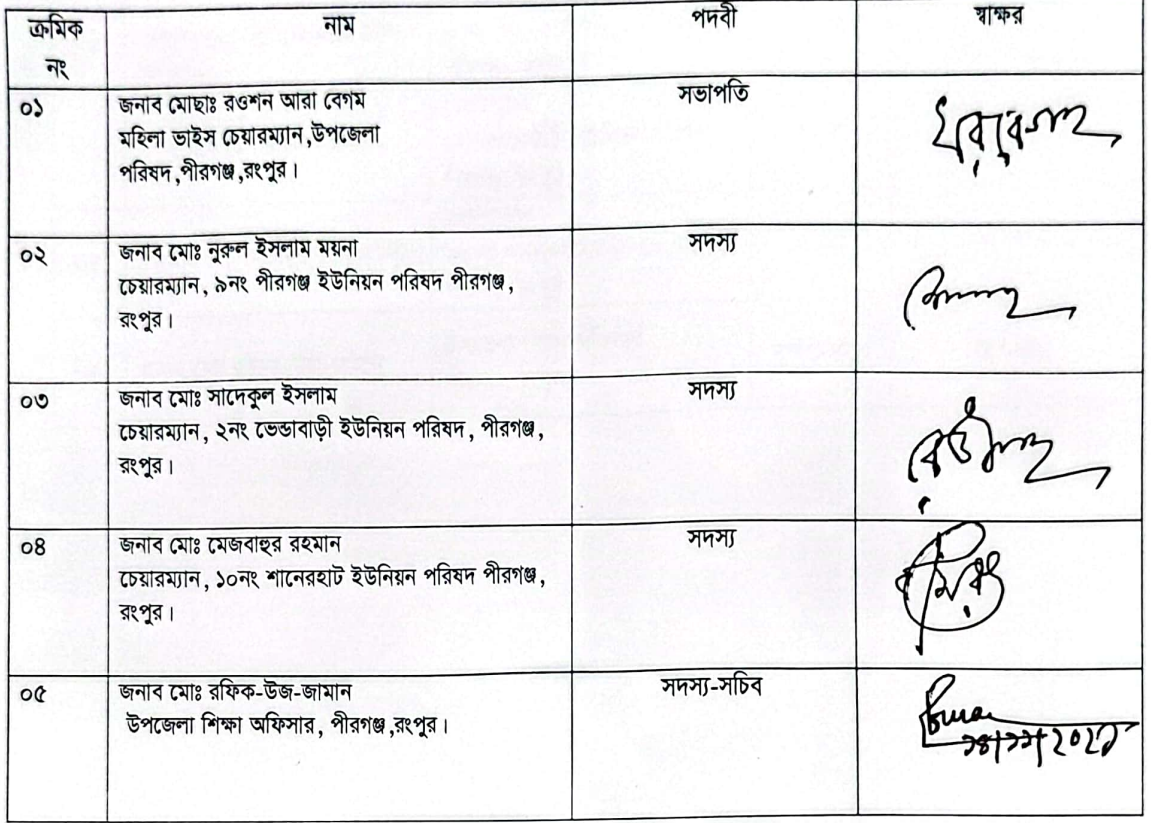 ক্রমিক নং নাম পদবী স্বাক্ষর
০১ জনাব মোছাঃ রওশন আরা বেগম সভাপতি
মহিলা ভাইস চেয়ারম্যান,উপজেলা
পরিষদ,পীরগঞ্জ,রংপুর।
০২ জনাব মোঃ নুরুল ইসলাম ময়না সদস্য
চেয়ারম্যান, ৯নং পীরগঞ্জ ইউনিয়ন পরিষদ পীরগঞ্জ,
রংপুর।
০৩ জনাব মোঃ সাদেকুল ইসলাম সদস্য
চেয়ারম্যান, ২নং ভেন্ডাবাড়ী ইউনিয়ন পরিষদ, পীরগঞ্জ,
রংপুর।
০৪ জনাব মোঃ মেজবাহুর রহমান সদস্য
চেয়ারম্যান, ১০নং শানেরহাট ইউনিয়ন পরিষদ পীরগঞ্জ,
রংপুর।
০৫ জনাব মোঃ রফিক-উজ-জামান সদস্য-সচিব
উপজেলা শিক্ষা অফিসার, পীরগঞ্জ,রংপুর।